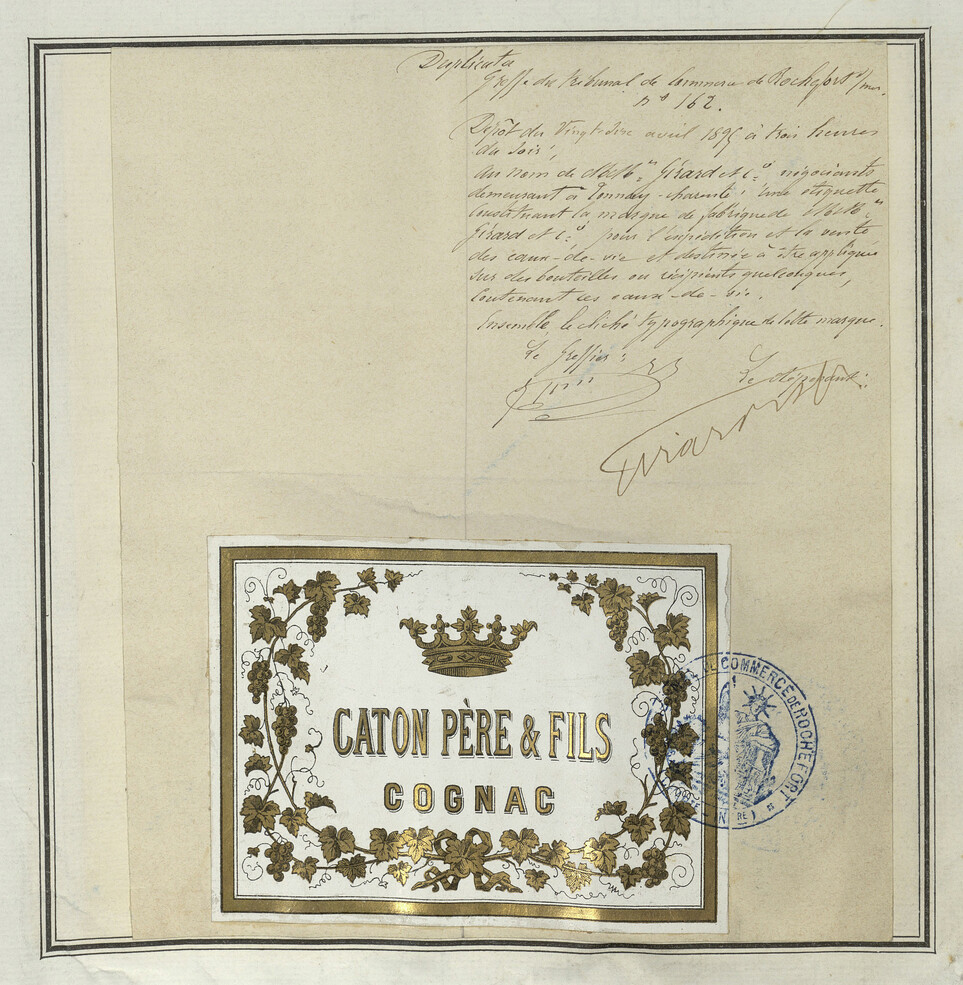 Duplicata
Greffe du tribunal de Commerce de Rochefort s/mer.
n° 162.
Dépôt du Vingt avril à trois heures
du soir,
au nom de MM. Girard et Cie négociants
demeurant à Tonnay-charente; Une etiquette
constituant la marque de fabrique de MM.
Girard et Cie pour l'expédition et la vente
des eaux-de-vie et destinée à être appliquée
sur des bouteilles ou récipients quelconques,
contenant ces eaux-de-vie.
Ensemble, le cliché typographique de cette marque.
Le Greffier:
Le déposant:
Girard
CATON PÈRE & FILS
COGNAC
COMMERCE DE ROCHEFORT